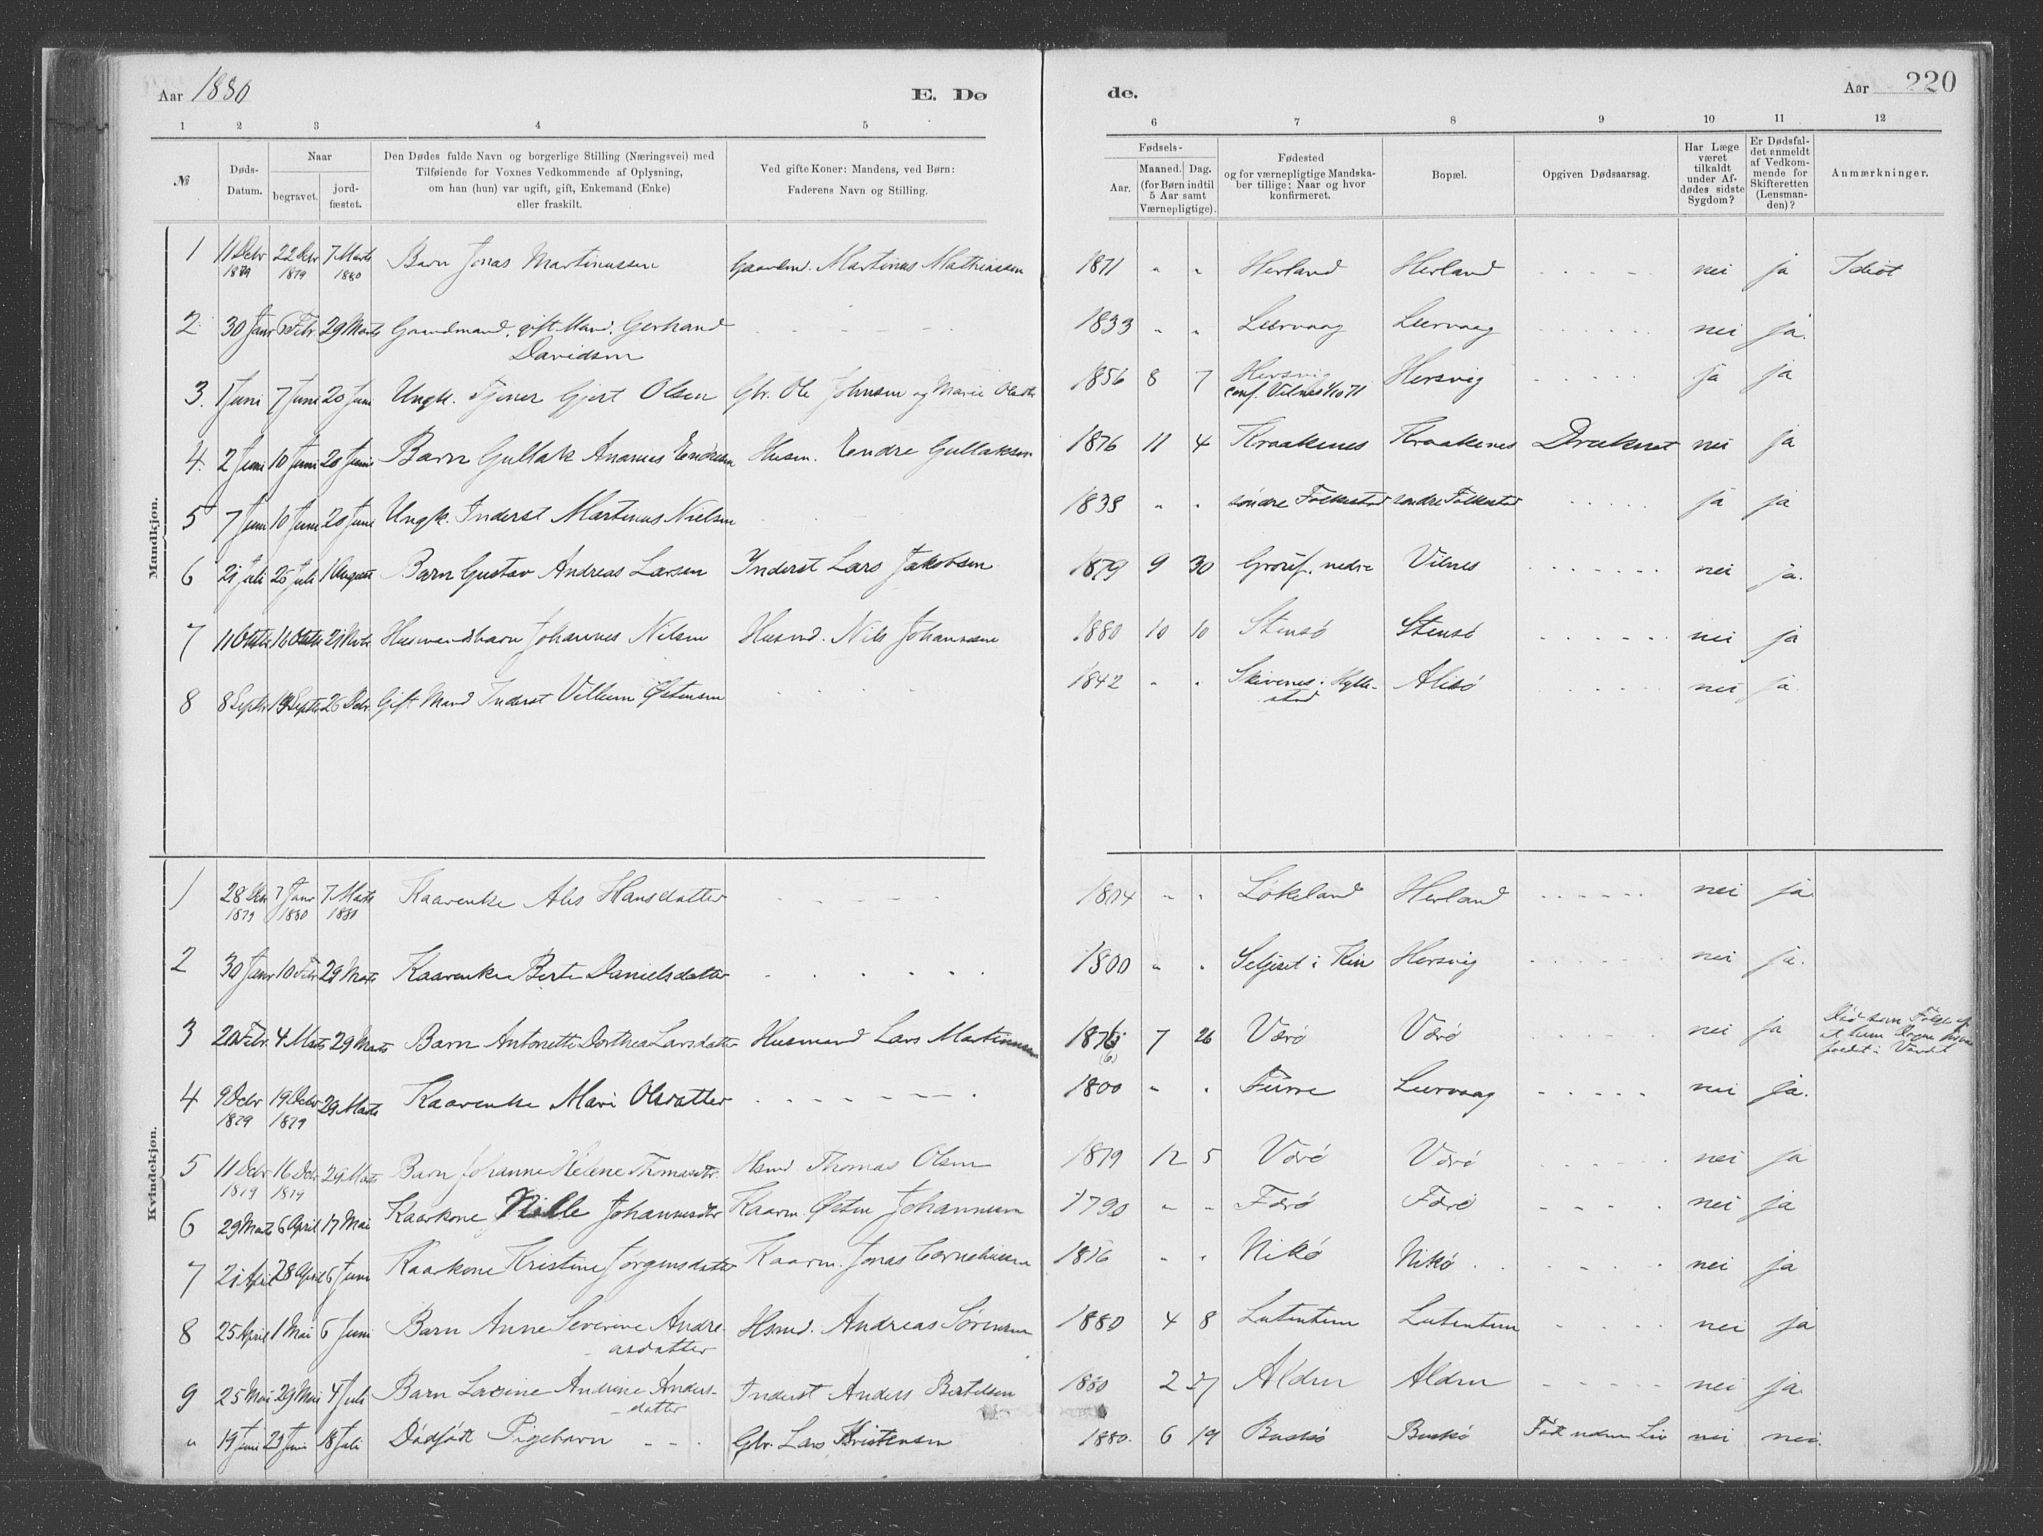 Aar 1880
E. Dø
de.
Aar
220
1 2 3 4 5 6 7 8 9 10 11 12
№
Døds-Datum.
Naar
begravet.
jord-fæstet.
Den Dødes fulde Navn og borgerlige Stilling (Næringsvei) med
Tilføiende for Voxnes Vedkommende af Oplysning,
om han (hun) var ugift, gift, Enkemand (Enke)
eller fraskilt.
Ved gifte Koner: Mandens, ved Børn:
Faderens Navn og Stilling.
Fødsels-
Aar.
Maaned. Dag.
(for Børn indtil
5 Aar samt
Værnepligtige).
Fødested
og for værnepligtige Mandska-
ber tillige: Naar og hvor
konfirmeret.
Bopæl.
Opgiven Dødsaarsag.
Har Læge
været
tilkaldt
under Af-
dødes sidste
Sygdom?
Er Dødsfal-
det anmeldt
af Vedkom-
mende for
Skifteretten
(Lensman-
den)?
Anmærkninger.
Mandkjøn.
1 11 Dcbr 1879 22 Dcbr 1879 7 Marts 1880 Barn Jonas Martinussen Gaardmd. Martinus Mathiassen 1871 " " Herland Herland nei ja Idiot
2. 30 Janr 6 Febr 29 Marts Gaardmand, gift Mand, Gerhard 1833 " " Leervaag Leervaag nei ja.
Davidsen
3. 1 Juni 7 Juni 20 Juni Ungk. Tjener Gjert Olsen Gbr. Ole Johnsen og Marie Olsdtr 1856 8 7 Hersvig Hersvig ja ja
conf. Vilnes 1/10 71
4. 2 Juni 10 Juni 20 Juni Barn Gullak Ananias Endresen Husm. Endre Gullaksen 1876 11 4 Kraakenes Kraakenes Druknet nei ja
5 7 Juni 10 Juni 20 Juni Ungk. Inderst Martinus Nielsen 1838 " " søndre Folkestad søndre Folkestad ja ja
6 21 Juli 25 Juli 1 August Barn Gustav Andreas Larsen Inderst Lars Jakobsen 1879 9 30 nedre Vilnes nei ja.
7 11 Oktbr 16 Oktbr Husmandsbarn Johannes Nilsen Husmd. Nils Johannesen 1880 10 10 Stensø Stensø nei ja
8 8 Septbr Septbr 26 Dcbr Gift Mand Inderst Villum Østensen 1842 " " Skivenes i Hylle- Alesø nei ja.
stad
Kvindekjøn.
1 28 Dcbr 1879 7 Janr 1880 7 Marts 1880 Kaarenke Alis Hansdatter " " Løkeland Herland nei ja.
2 30 Janr 10 Febr 29 Marts Kaarenke Berte Danielsdatter 1800 " " Seljeset i Kin Hersvig nei ja.
3 20 Febr. 4 Marts 29 Marts Barn Antonette Dorthea Larsdatter Husmand Lars Martinussen 1876 (6) 7 26 Værø Værø nei ja Død som Følge af
at hun
faldt i Vandet
4 9 Dcbr 1879 19 Dcbr 1879 29 Marts Kaarenke Mari Olsdatter 1800 " " Furre Leervaag nei ja.
5 11 Dcbr 1879 16 Dcbr 1879 29 Marts Barn Johanne Helene Thomasdtr. Hsmd Thomas Olsen 1879 12 5 Værø Værø nei ja
6 29 Marts 6 April 17 Mai Kaarkone Nille Johannesdtr Kaarm. Østen Johannesen 1790 " " Færø Færø nei ja
7 21 April 28 April 6 Juni Kaarkone Kristine Jørgensdatter Kaarm. Jonas Corneliussen 1816 " " Nikø Nikø nei ja
8 25 April 1 Mai 6 Juni Barn Anne Severine Andre- Hsmd. Andreas Sørensen 1880 4 8 Lutentun Lutentun nei ja
asdatter
9 25 Mai 29 Mai 4 Juli Barn Lovine Andrine Anders- Inderst Anders Bertelsen 1880 2 27 Alden Alden nei ja.
datter
" 19 Juni 23 Juni 18 Juli Dødfødt Pigebarn Gbr. Lars Kristensen 1880. 6 19 Buskø Buskø Født uden Liv nei nei.